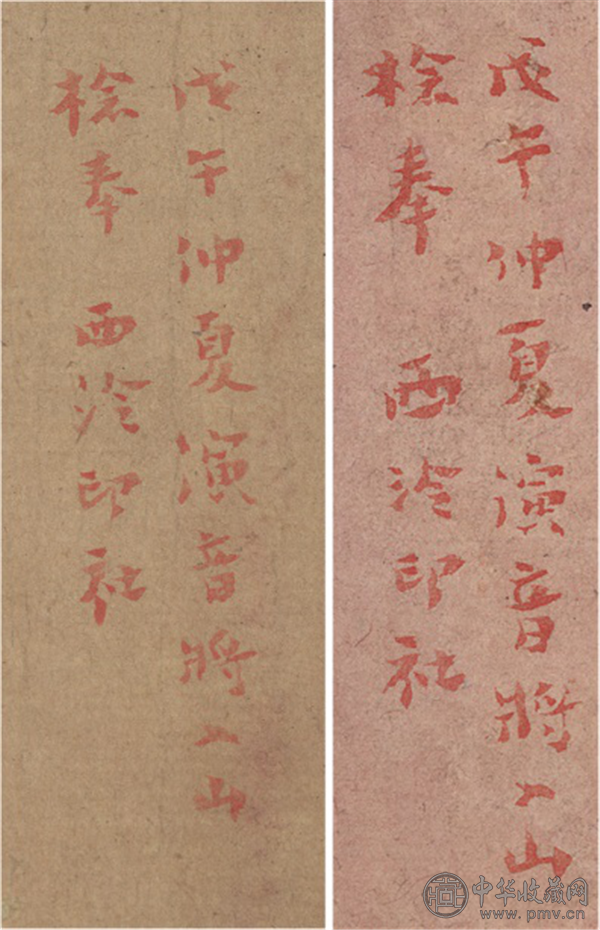 戊午仲夏演音將入山
检奉 西泠印社
戊午仲夏演音將入山
检奉 西泠印社
中华收藏网
www.pmv.cn